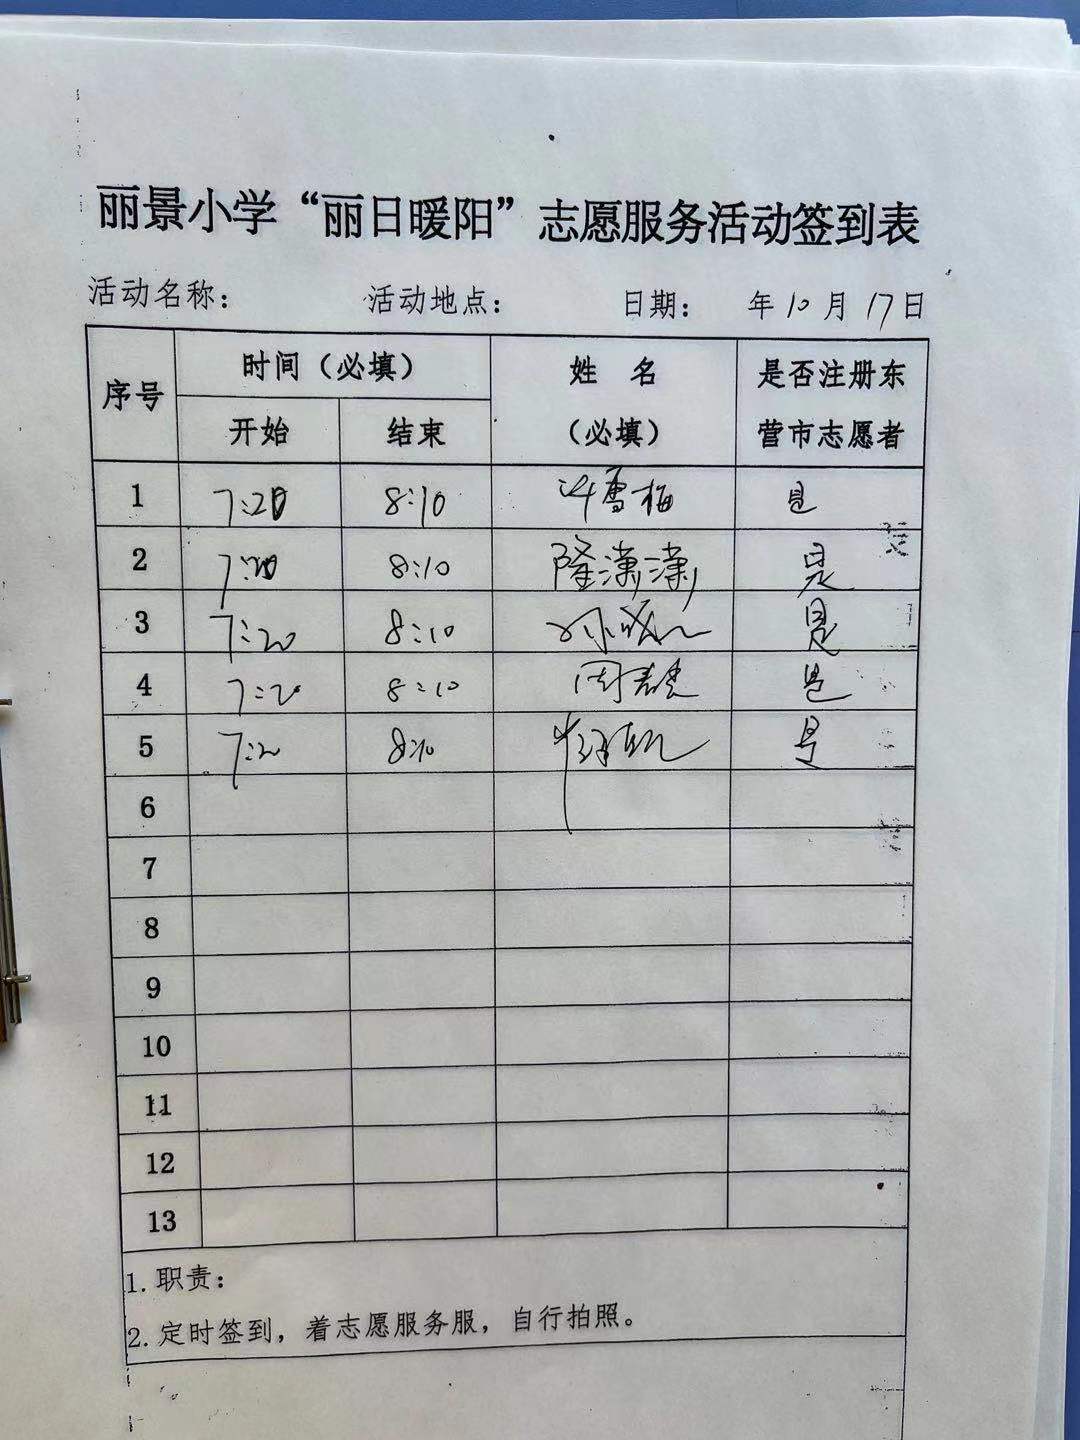 丽景小学“丽日暖阳”志愿服务活动签到表
活动名称： 活动地点： 日期： 年10月17日
序号 时间（必填） 姓 名（必填） 是否注册东营市志愿者
开始 结束
1 7:20 8:10 许雪梅 是
2 7:20 8:10 隆潇潇 是
3 7:20 8:10 是
4 7:20 8:10 是
5 7:20 8:10 是
6
7
8
9
10
11
12
13
1. 职责：
2. 定时签到，着志愿服务服，自行拍照。